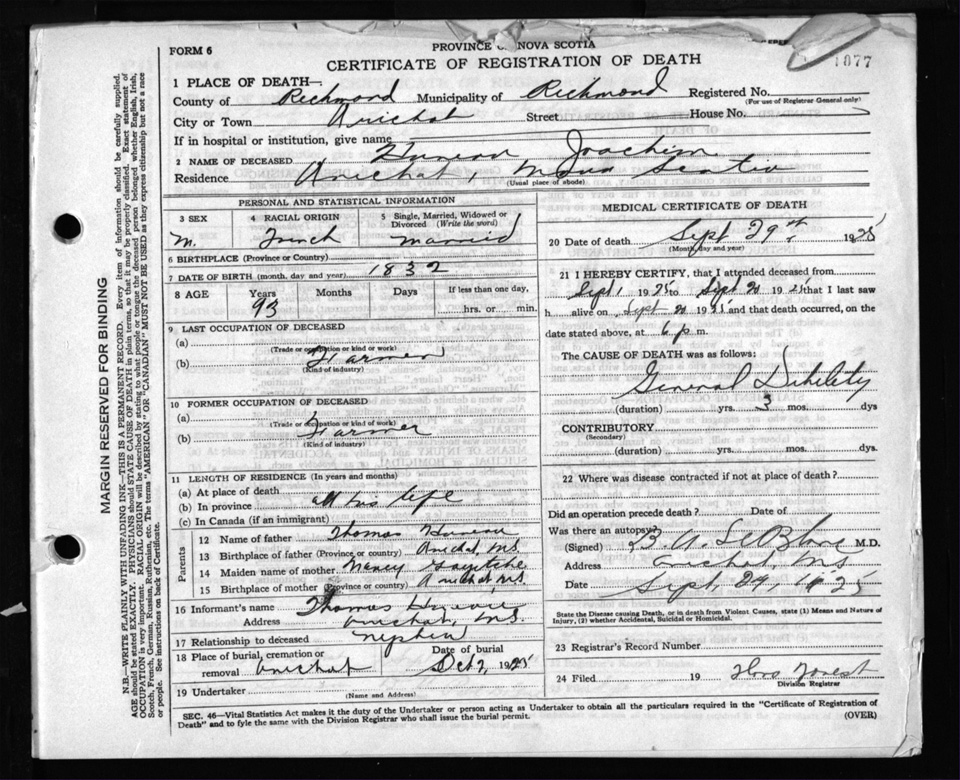 FORM 6
PROVINCE OF NOVA SCOTIA
CERTIFICATE OF REGISTRATION OF DEATH
1077
MARGIN RESERVED FOR BINDING
N.B.—WRITE PLAINLY WITH UNFADING INK—THIS IS A PERMANENT RECORD. Every item of information should be carefully supplied.
AGE should be stated EXACTLY. PHYSICIANS should STATE CAUSE OF DEATH in plain terms, so that it may be properly classified. Exact statement of
OCCUPATION is very important. RACIAL ORIGIN will be described by stating to what people or tongue the deceased person belonged whether English, Irish,
Scotch, French, German, Russian, Ruthenian, etc. The terms "AMERICAN" OR "CANADIAN" MUST NOT BE USED as they express citizenship but not a race
or people. See instructions on back of Certificate.
1 PLACE OF DEATH—
County of Richmond Municipality of Richmond Registered No.
(For use of Registrar General only)
City or Town Arichat Street House No.
If in hospital or institution, give name
2 NAME OF DECEASED Joachim
Residence Arichat, Nova Scotia
(Usual place of abode)
PERSONAL AND STATISTICAL INFORMATION
3 SEX M.
4 RACIAL ORIGIN French
5 Single, Married, Widowed or Divorced (Write the word) Married
6 BIRTHPLACE (Province or Country)
7 DATE OF BIRTH (month, day and year) 1832
8 AGE Years 93 Months Days If less than one day, hrs. or min.
9 LAST OCCUPATION OF DECEASED
(a)
(Trade or occupation or kind or work)
(b) Farmer
(Kind of industry)
10 FORMER OCCUPATION OF DECEASED
(a)
(Trade or occupation or kind of work)
(b) Farmer
(Kind of industry)
11 LENGTH OF RESIDENCE (In years and months)
(a) At place of death
(b) In province all his life
(c) In Canada (if an immigrant)
Parents
12 Name of father Thomas
13 Birthplace of father (Province or country) Arichat, N.S.
14 Maiden name of mother Nancy
15 Birthplace of mother (Province or country) Arichat N.S.
16 Informant's name Thomas
Address Arichat, N.S.
17 Relationship to deceased nephew
18 Place of burial, cremation or removal Arichat Date of burial Oct 2, 1925
19 Undertaker
(Name and Address)
MEDICAL CERTIFICATE OF DEATH
20 Date of death Sept 29th 1925
(Month, day and year)
21 I HEREBY CERTIFY, that I attended deceased from
Sept 1 1925 to Sept 20 1925 that I last saw
h alive on Sept 20 1925 and that death occurred, on the
date stated above, at 6 p m.
The CAUSE OF DEATH was as follows:
General Debility
(duration) yrs. 3 mos. dys
CONTRIBUTORY
(Secondary)
(duration) yrs. mos. dys
22 Where was disease contracted if not at place of death?
Did an operation precede death? Date of
Was there an autopsy?
(Signed) B A LeBlanc M.D.
Address Arichat, N.S
Date Sept 29, 1925
State the Disease causing Death, or in death from Violent Causes, state (1) Means and Nature of
Injury, (2) whether Accidental, Suicidal or Homicidal.
23 Registrar's Record Number
24 Filed 19 Forest
Division Registrar
SEC. 46—Vital Statistics Act makes it the duty of the Undertaker or person acting as Undertaker to obtain all the particulars required in the "Certificate of Registration of
Death" and to fyle the same with the Division Registrar who shall issue the burial permit. (OVER)